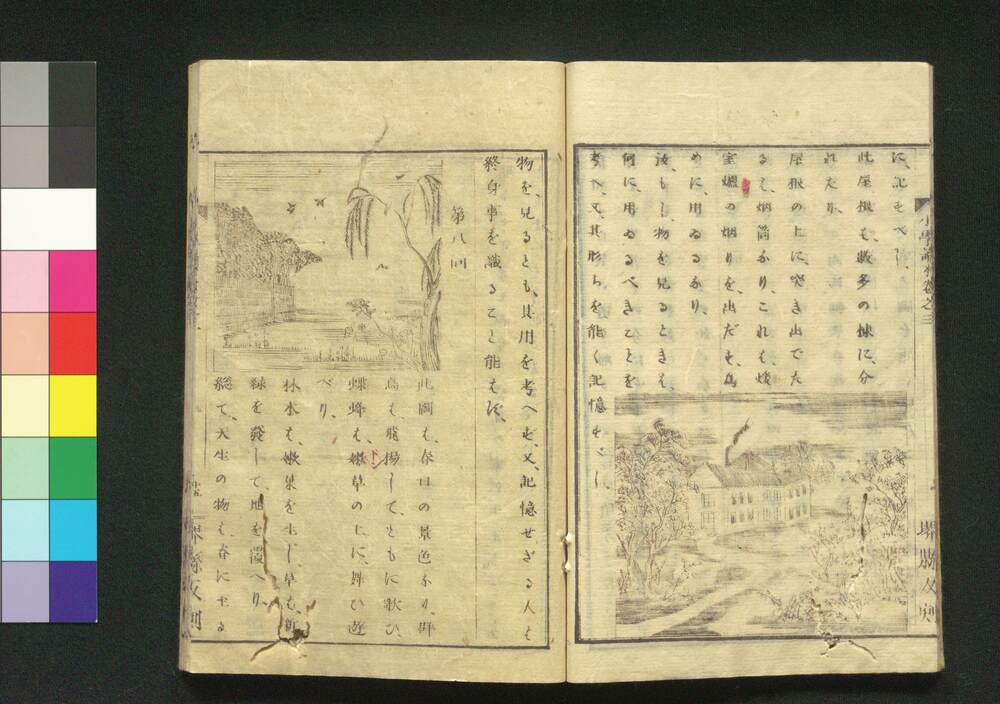 に、記をべし、
此屋根も、数多の煉に、分
れたり、
屋根の上に、突き出でた
るも、烟筒なり、これも、煖
室爐の烟りを、出だす、為
めに、用ゐるなり、
汝、もし、物を見るときも、
何に、用ゐるべきことを
考へ、又、其形ちを、能く記憶すべし、
小學讀本巻之三
堺縣反刻
物を、見るとも、其用を考へず、又、記憶せざる人も
終身事を識ること能はず、
第八回
此圖も、春日の景色なり、群
鳥も、飛揚して、ともに歌ひ、
蝶蜂も、嫩草の上に、舞ひ遊
べり、
林木も、嫩葉を生じ、草も、新
緑を發して、地を覆へり、
総て、天生の物も、春に至る
堺縣反刻